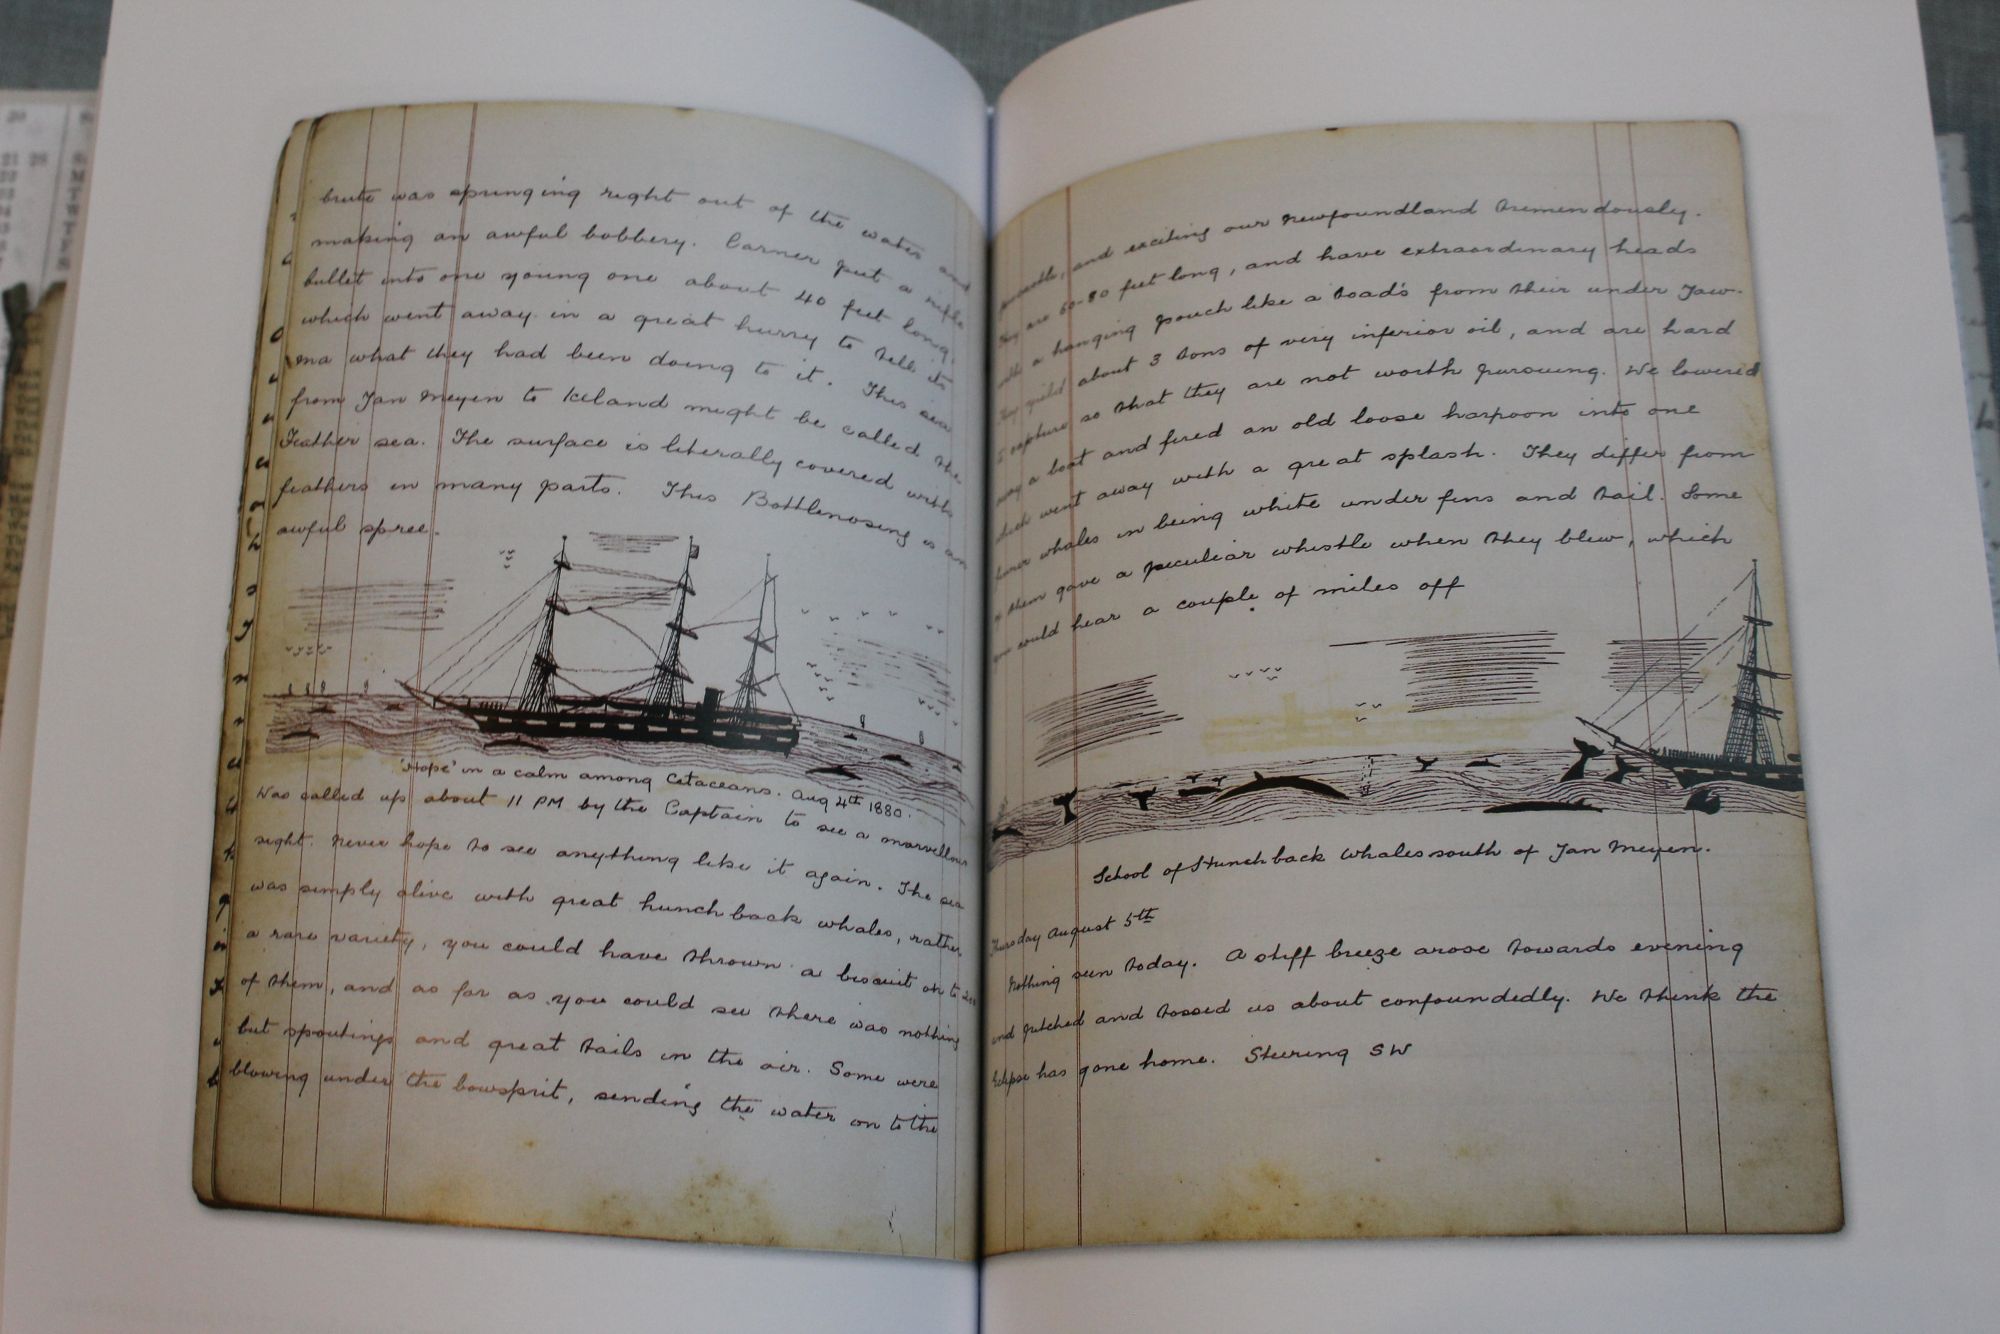 brute was springing right out of the water and
making an awful bobbery. Carner put a rifle
bullet into one young one about 40 feet long,
which went away in a great hurry to tell its
ma what they had been doing to it. This sea
from Jan Meyen to Iceland might be called the
Feather sea. The surface is literally covered with
feathers in many parts. This Bottlenosing is an
awful spree.
'Hope' in a calm among Cetaceans. Aug 4th 1880.
Was called up about 11 PM by the Captain to see a marvellous
sight. Never hope to see anything like it again. The sea
was simply alive with great hunchback whales, rather
a rare variety, you could have thrown a biscuit on to 200
of them, and as far as you could see there was nothing
but spoutings and great tails in the air. Some were
blowing under the bowsprit, sending the water on to the
and exciting our Newfoundland tremendously.
They are 60-80 feet long, and have extraordinary heads
with a hanging pouch like a toad's from their under jaw.
They yield about 3 tons of very inferior oil, and are hard
to capture so that they are not worth pursuing. We lowered
away a boat and fired an old loose harpoon into one
which went away with a great splash. They differ from
finner whales in being white under fins and tail. Some
of them gave a peculiar whistle when they blew, which
you could hear a couple of miles off
School of Hunchback Whales south of Jan Meyen.
Thursday August 5th
Nothing seen today. A stiff breeze arose towards evening
and pitched and tossed us about confoundedly. We think the
Eclipse has gone home. Steering SW